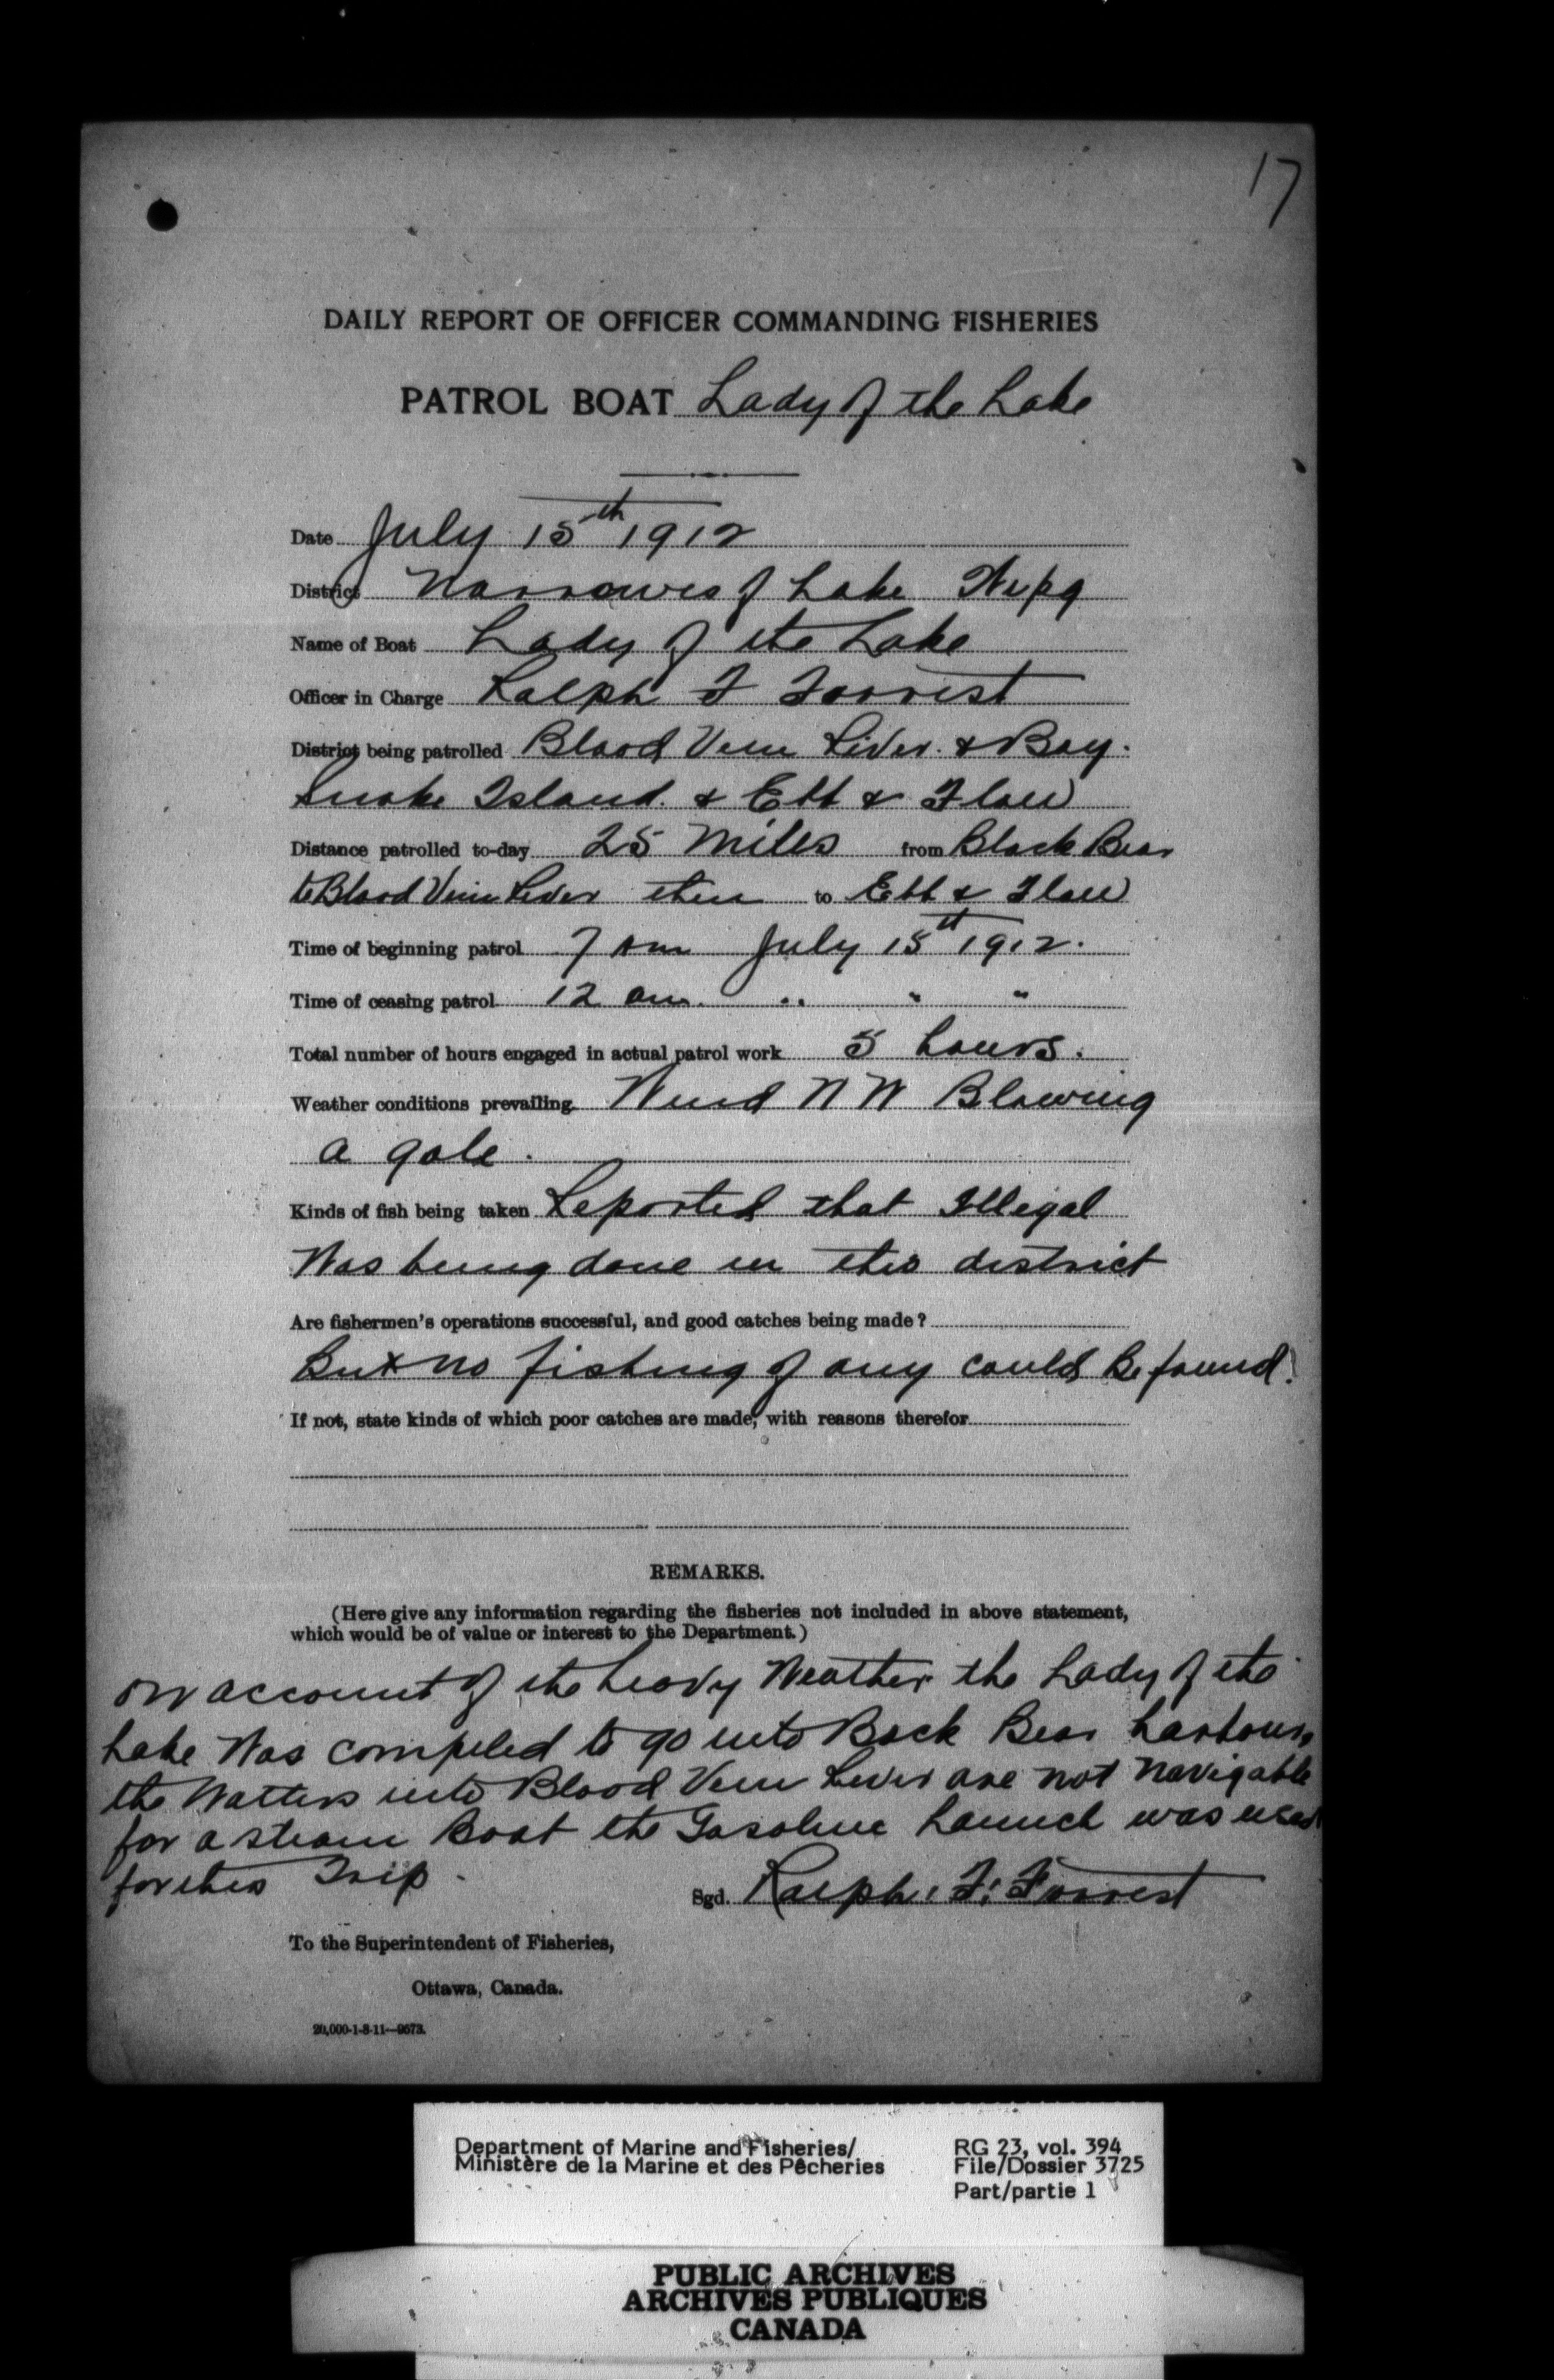 17
DAILY REPORT OF OFFICER COMMANDING FISHERIES
PATROL BOAT Lady of the Lake
Date July 15th 1912
District Narrowes of Lake Wpg
Name of Boat Lady of the Lake
Officer in Charge Ralph F Forrest
District being patrolled Blood Vein River. & Bay.
Snake Island. & Ebb & Flow
Distance patrolled to-day 25 Miles from Black Bear
to Blood Vein River then to Ebb & Flow
Time of beginning patrol 7 am July 15th 1912.
Time of ceasing patrol 12 am. " " "
Total number of hours engaged in actual patrol work 5 hours.
Weather conditions prevailing Wind N W Blowing
a gale.
Kinds of fish being taken Reported that Illegal
Was being done in this district
Are fishermen's operations successful, and good catches being made?
But no fishing of any could be found.
If not, state kinds of which poor catches are made, with reasons therefor
REMARKS.
(Here give any information regarding the fisheries not included in above statement,
which would be of value or interest to the Department.)
on account of the heavy Weather the Lady of the
Lake Was compeled to go into Back Bear harbour,
the Watters into Blood Vein River are not navigable
for a steam Boat the Gasoline Launch was used
for this Trip.
Sgd. Ralph. F. Forrest
To the Superintendent of Fisheries,
Ottawa, Canada.
20,000-1-8-11—9673.
Department of Marine and Fisheries/
Ministère de la Marine et des Pêcheries
RG 23, vol. 394
File/Dossier 3725
Part/partie 1
PUBLIC ARCHIVES
ARCHIVES PUBLIQUES
CANADA